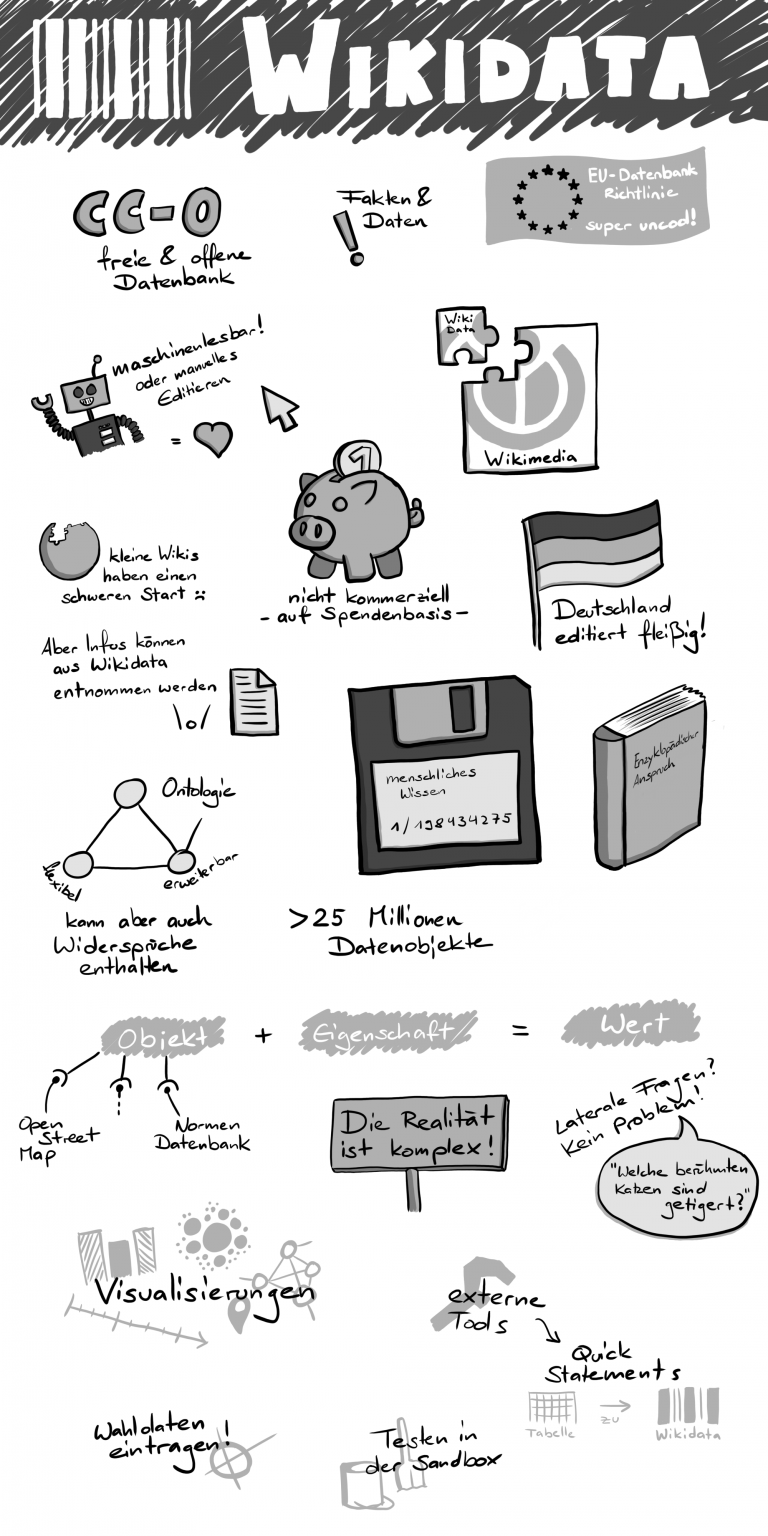 WIKIDATA
CC-0
freie & offene
Datenbank
Fakten &
Daten
EU-Datenbank
Richtlinie
super uncool!
maschinenlesbar!
oder manuelles
Editieren
=
Wiki
Data
Wikimedia
1
nicht kommerziell
- auf Spendenbasis -
kleine Wikis
haben einen
schweren Start :(
Deutschland
editiert fleißig!
Aber Infos können
aus Wikidata
entnommen werden
\o/
menschliches
Wissen
1/198434275
Enzyklopädischer
Anspruch
Ontologie
flexibel
erweiterbar
kann aber auch
Widersprüche
enthalten
>25 Millionen
Datenobjekte
Objekt + Eigenschaft = Wert
Open
Street
Map
Normen
Datenbank
Die Realität
ist komplex!
Laterale Fragen?
Kein Problem!
"Welche berühmten
Katzen sind
getigert?"
Visualisierungen
externe
Tools
Quick
Statements
Tabelle
zu
Wikidata
Wahldaten
eintragen!
Testen in
der Sandbox